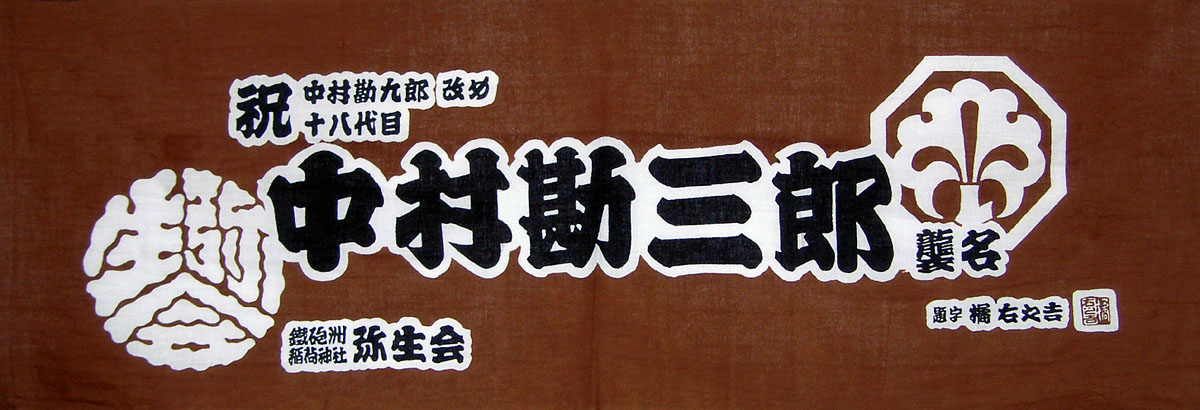 祝
中村勘九郎 改め
十八代目
中村勘三郎
襲名
弥生会
鐵砲洲
稲荷神社 弥生会
題字 橘右之吉